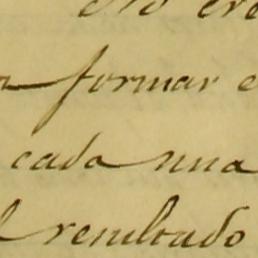 formar e
cada una
resultado